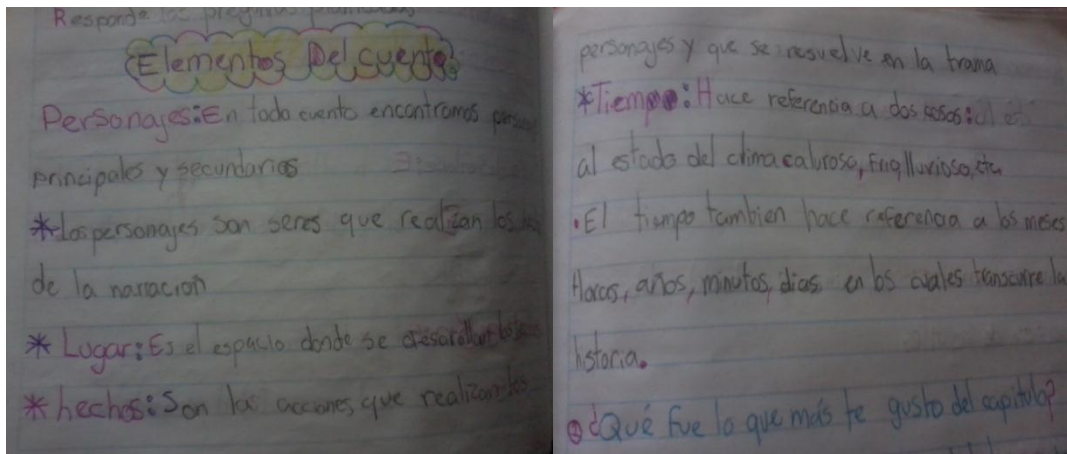 Responde las preguntas planteadas
Elementos Del cuento
Personajes: En todo cuento encontramos
principales y secundarios
*Los personajes son seres que realizan los
de la narracion
* Lugar: Es el espacio donde se desarollan los
* hechos: Son las acciones que realizan los
personajes y que se resuelve en la trama
*Tiempo: Hace referencia a dos cosas:
al estado del clima caluroso, frio, lluvioso, etc
• El tiempo tambien hace referencia a los meses
Horas, años, minutos, dias en los cuales transcurre la
historia.
¿Qué fue lo que más te gusto del capitulo?